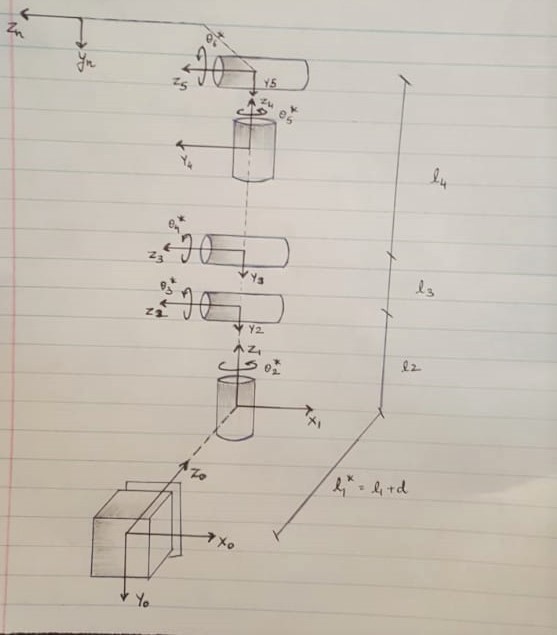 Zn
yn
θ6*
Z5
Y5
Z4
θ5*
Y4
l4
θ4*
Z3
Y3
l3
θ3*
Z2
Y2
Z1
θ2*
l2
X1
Z0
l1* = l1 + d
X0
Y0